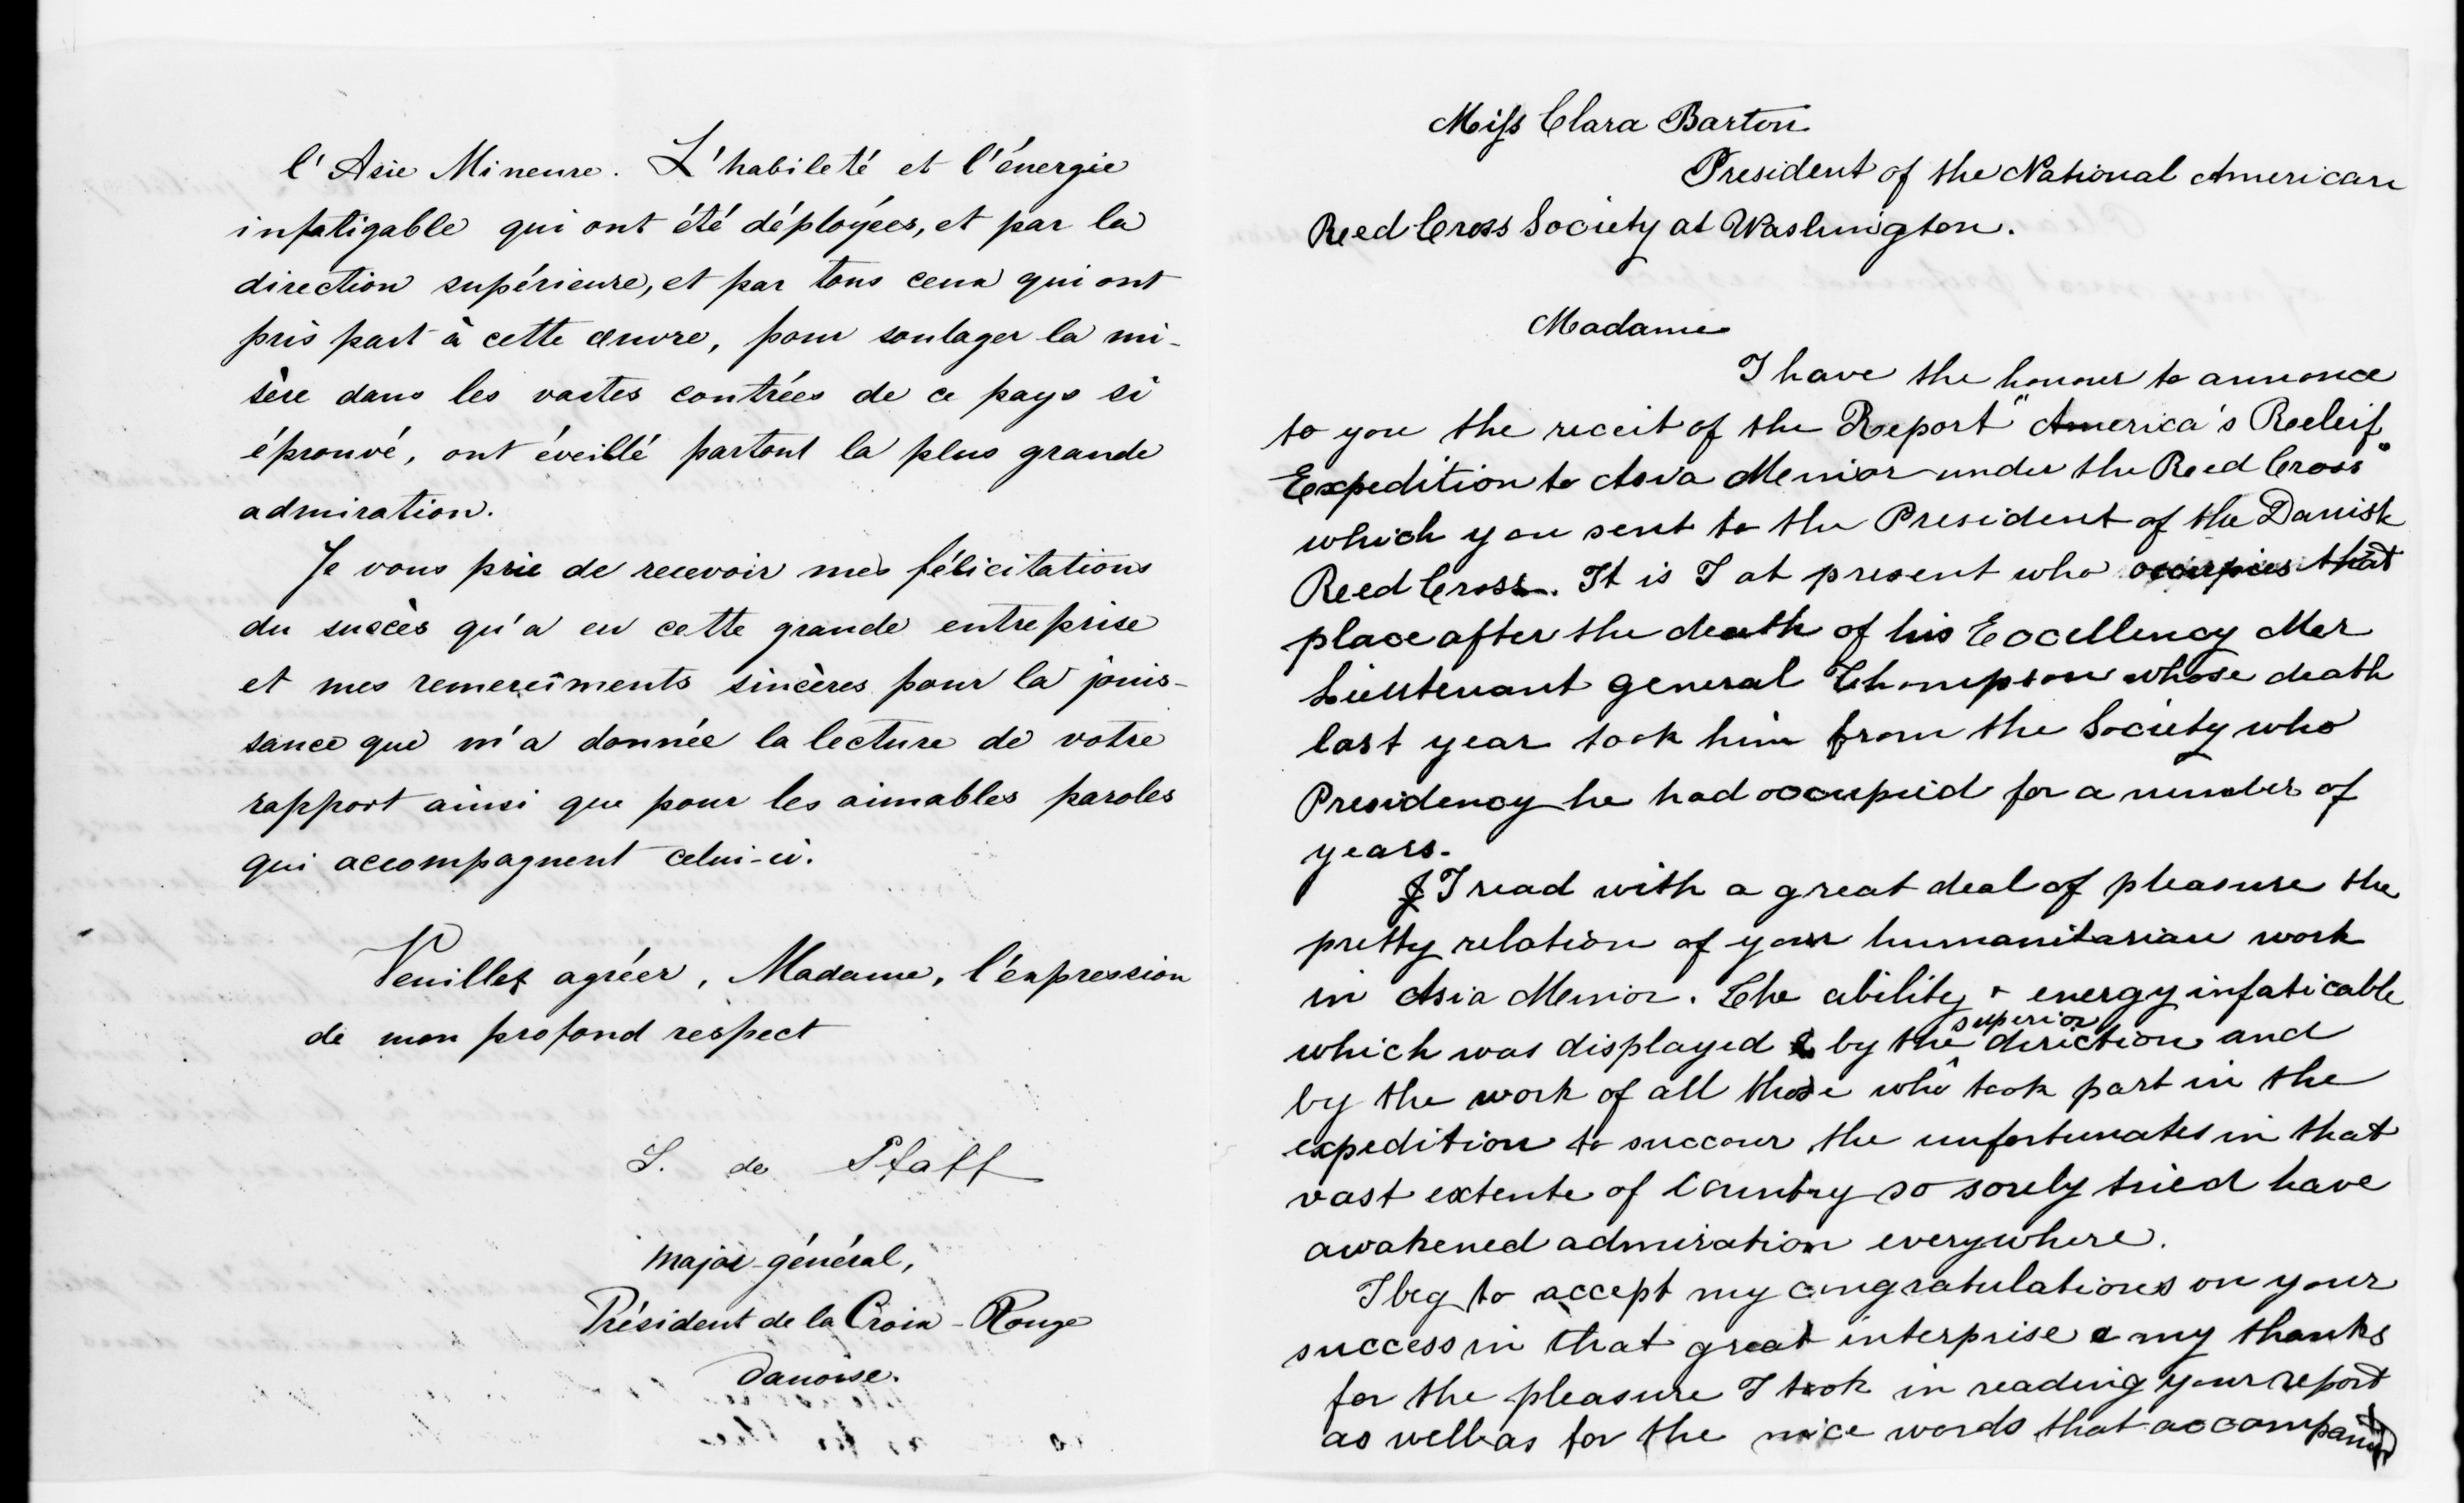 l'Asie Mineure. L'habileté et l'énergie
infatigable qui ont été déployées, et par la
direction supérieure, et par tous ceux qui ont
pris part à cette œuvre, pour soulager la mi-
sère dans les vastes contrées de ce pays si
éprouvé, ont éveillé partout la plus grande
admiration.
Je vous prie de recevoir mes félicitations
du succès qu'a eu cette grande entreprise
et mes remercîments sincères pour la jouis-
sance que m'a donnée la lecture de votre
rapport ainsi que pour les aimables paroles
qui accompagnent celui-ci.
Veuillez agréer, Madame, l'expression
de mon profond respect
S. de Pfaff
Major-général,
Président de la Croix-Rouge
danoise.
Miss Clara Barton
President of the National American
Reed Cross Society at Washington.
Madame
I have the honour to announce
to you the receit of the Report "America's Releif
Expedition to Asia Menior under the Reed Cross"
which you sent to the President of the Danish
Reed Cross. It is I at present who occupies that
place after the death of his Excellency Mer
Lieutenant general Thompson whose death
last year took him from the Society who
Presidency he had occupied for a number of
years.
I read with a great deal of pleasure the
pretty relation of your humanitarian work
in Asia Menior. The ability & energy infaticable
which was displayed by the superior direction and
by the work of all those who took part in the
expedition to succour the unfortunates in that
vast extente of Country so sorely tried have
awakened admiration everywhere.
I beg to accept my congratulations on your
success in that great interprise & my thanks
for the pleasure I took in reading your report
as well as for the nice words that accompany